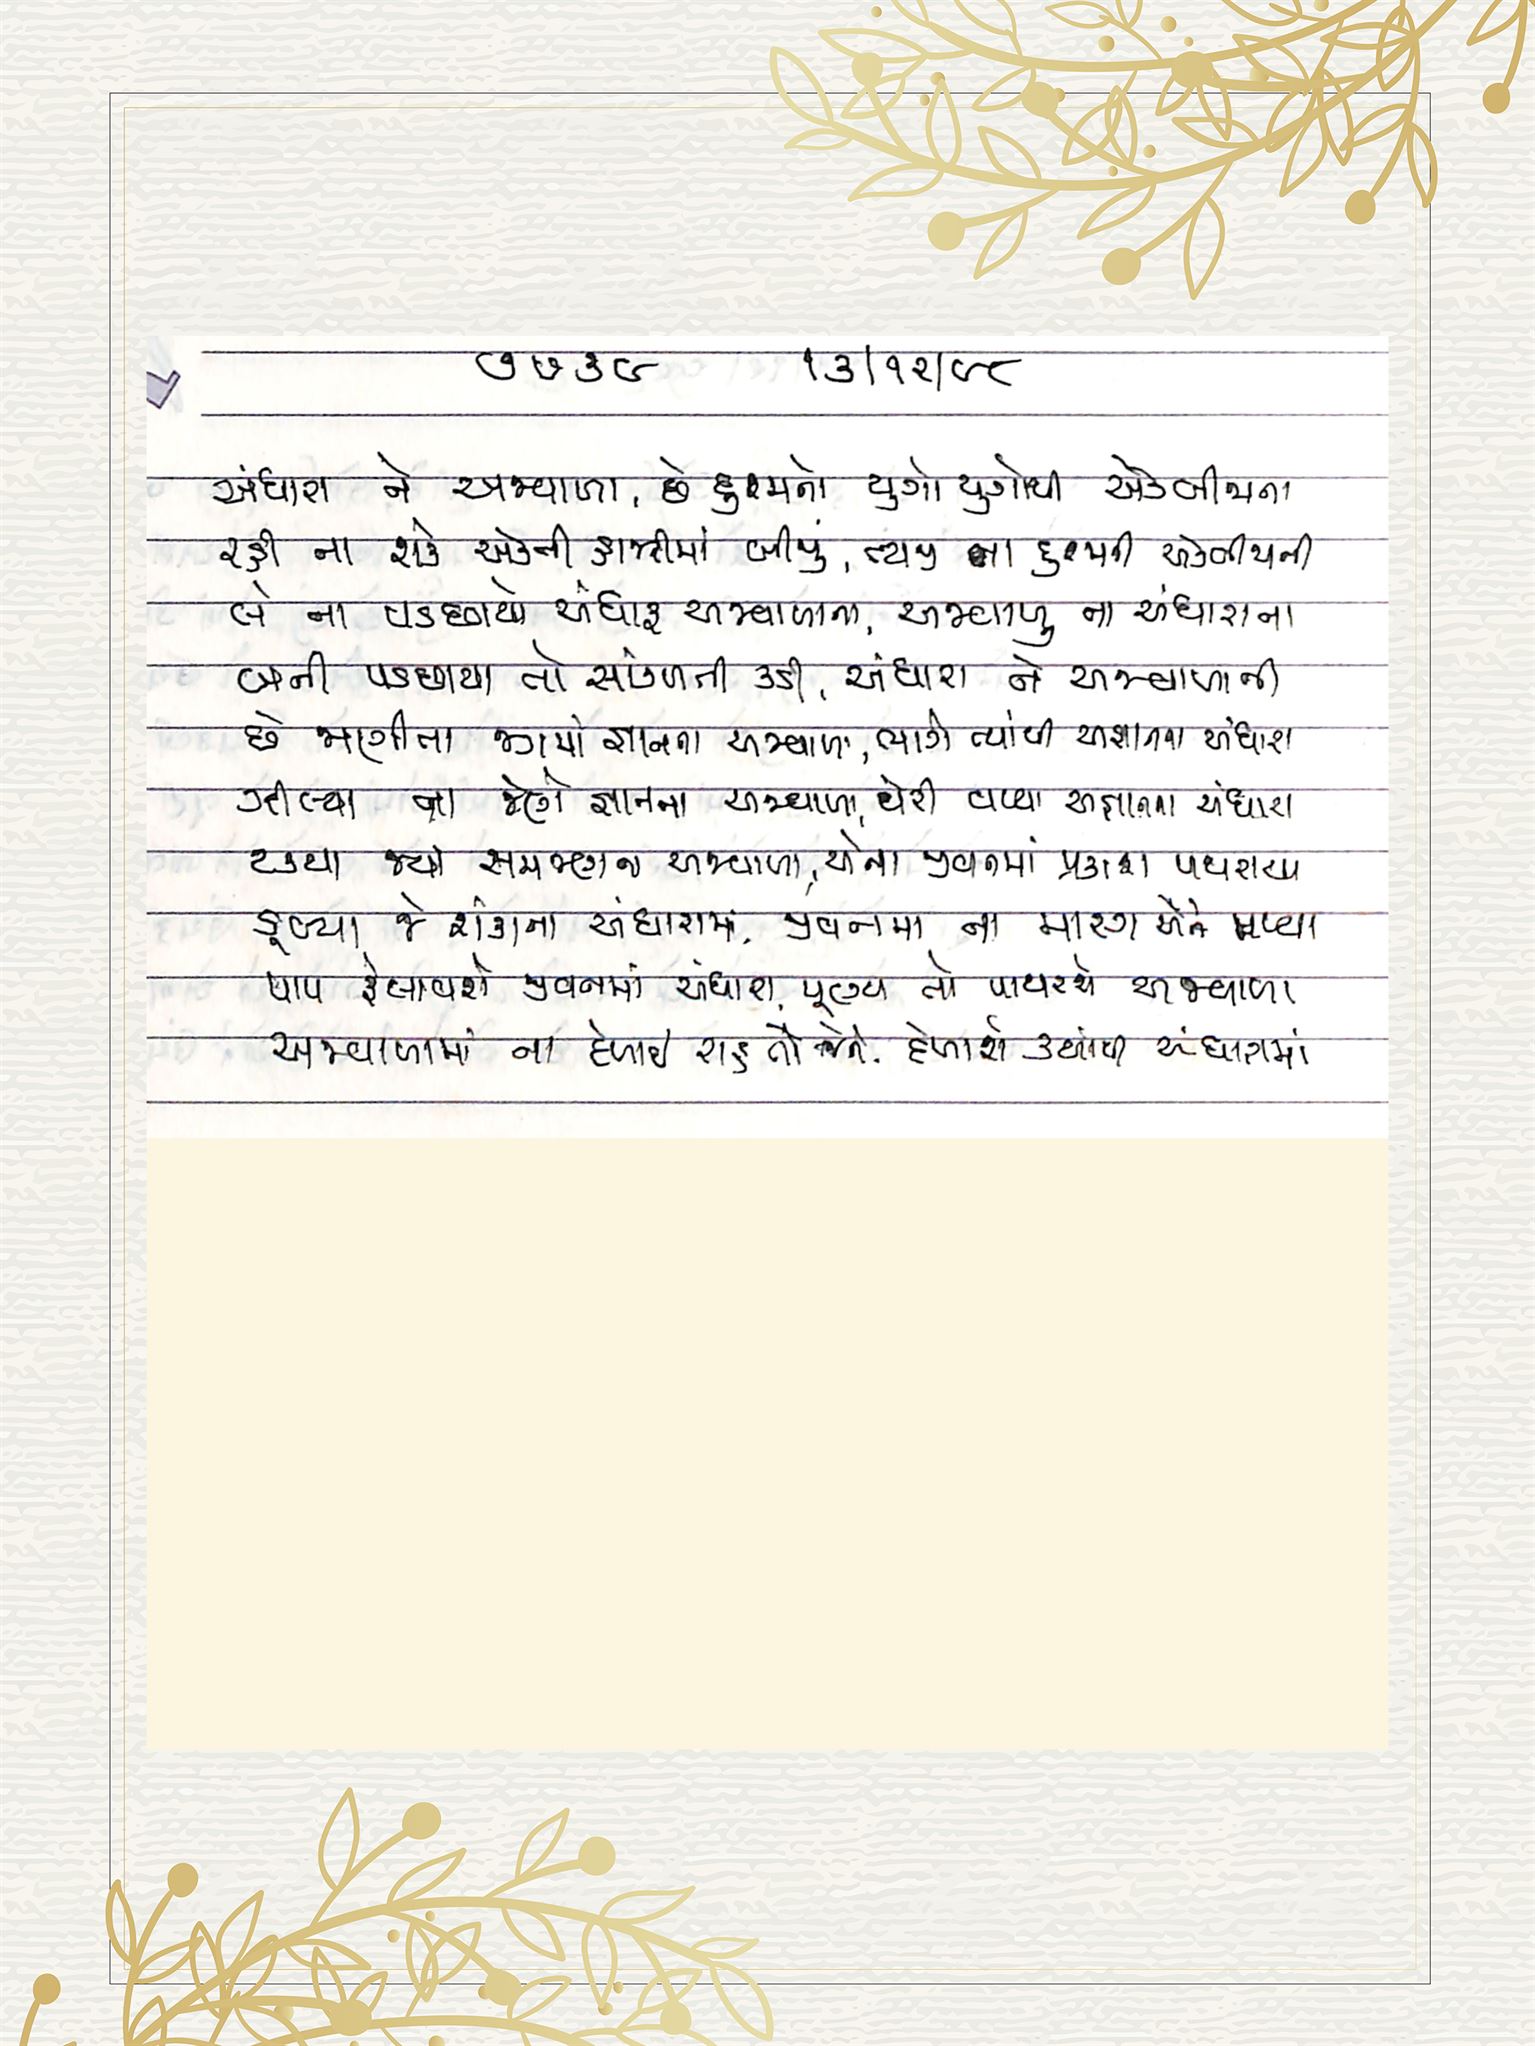 ૭૭૩૯ ૧૩/૧૨/૯૮
અંધારા ને અજવાળા, છે દુશ્મનો યુગો યુગોથી એકબીજાના
રહી ના શકે એકની હાજરીમાં બીજું, ત્યજી ના દુશ્મની એકબીજાની
બે ના પડછાયો અંધારૂ અજવાળાના, અજવાળુ ના અંધારાના
બંની પડછાયા તો સાંકળની કડી, અંધારા ને અજવાળાની
છે જાણીતા જગમાં જ્ઞાનના અજવાળા, ભાગે ત્યાંથી અજ્ઞાનના અંધારા
ઝીલ્યા ના જેણે જ્ઞાનના અજવાળા, ઘેરી વળ્યા અજ્ઞાનના અંધારા
ટક્યા જ્યાં સમજણના અજવાળા, એના જીવનમાં પ્રકાશ પથરાયા
ડૂબ્યા જે શંકાના અંધારામાં, જીવનમાં ના મારગ એને મળ્યા
પાપ ફેલાવશે જીવનમાં અંધારા, પૂણ્ય તો પાથરશે અજવાળા
અજવાળામાં ના દેખાઈ શક્યું તો જેને, દેખાશે ક્યાંથી અંધારામાં